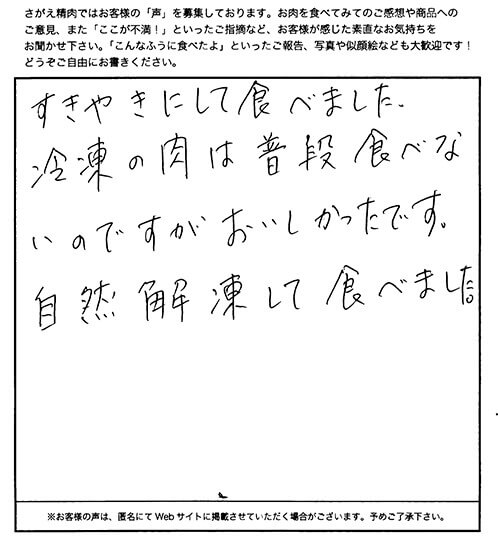 さがえ精肉ではお客様の「声」を募集しております。お肉を食べてみてのご感想や商品への
ご意見、また「ここが不満！」といったご指摘など、お客様が感じた素直なお気持ちを
お聞かせ下さい。「こんなふうに食べたよ」といったご報告、写真や似顔絵なども大歓迎です！
どうぞご自由にお書きください。
すきやきにして食べました.
冷凍の肉は普段食べな
いのですがおいしかったです。
自然解凍して食べました
※お客様の声は、匿名にてWebサイトに掲載させていただく場合がございます。予めご了承下さい。